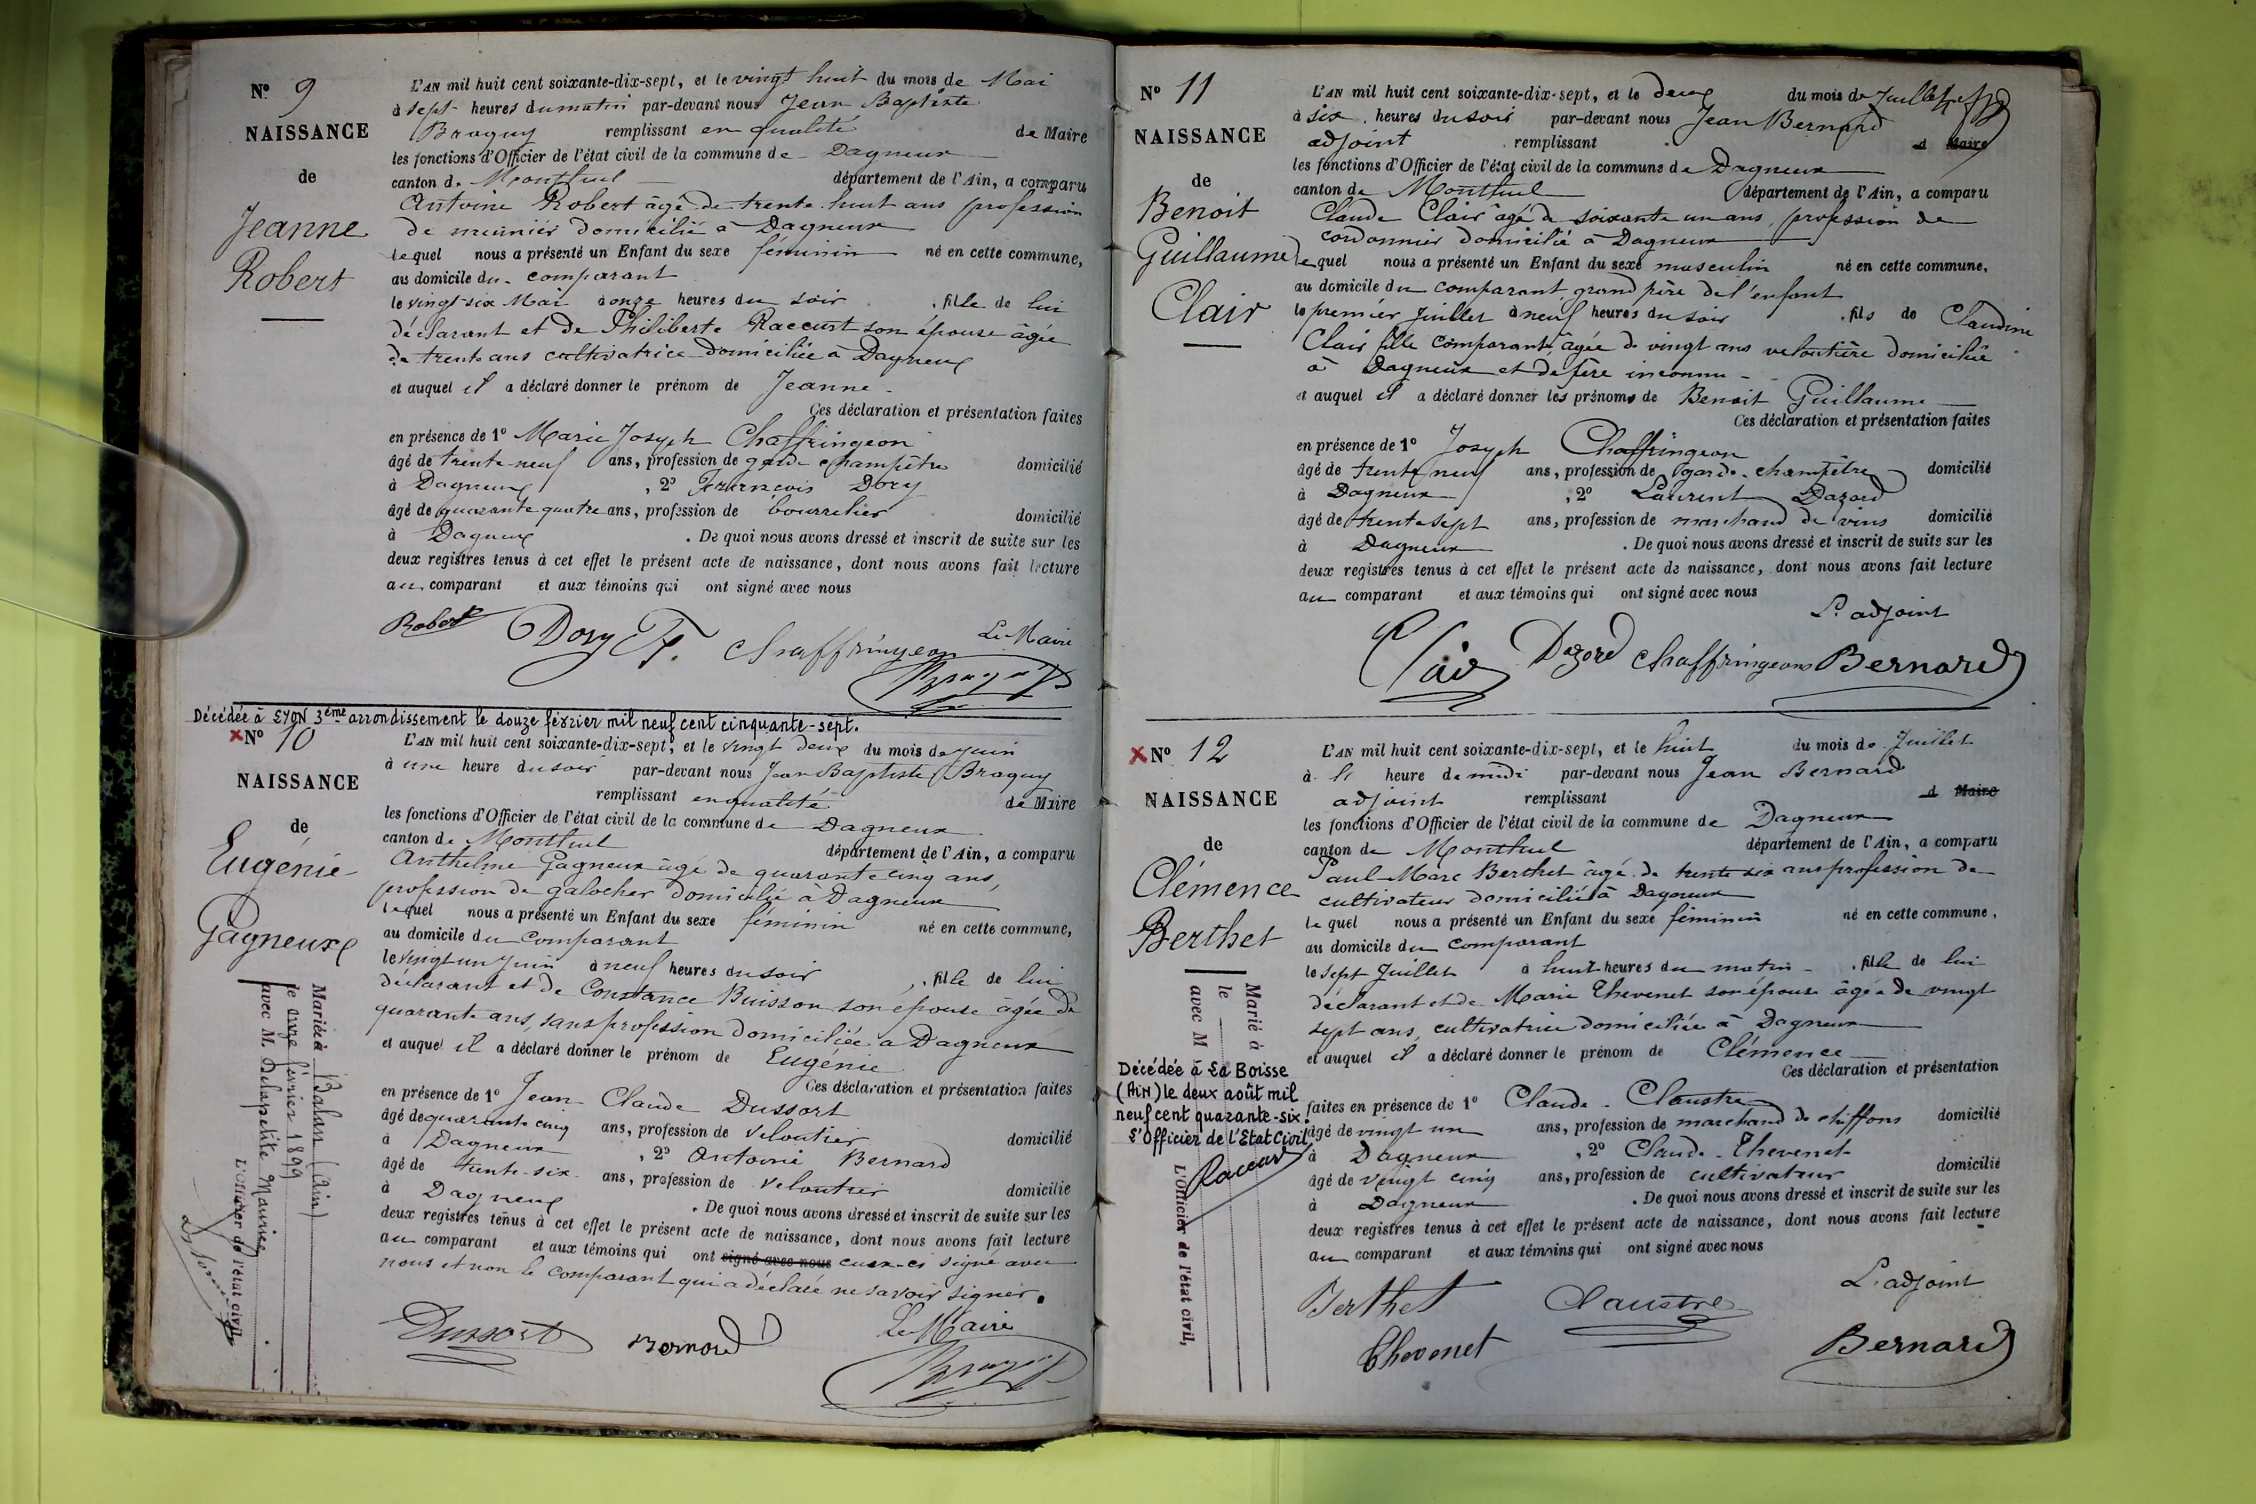 N° 9
NAISSANCE
de
Jeanne
Robert
L'AN mil huit cent soixante-dix-sept, et le vingt huit du mois de Mai
à sept heures du matin par-devant nous Jean Baptiste
Braguy remplissant en qualité de Maire
les fonctions d'Officier de l'état civil de la commune de Dagneux
canton de Montluel département de l'Ain, a comparu
Antoine Robert âgé de trente huit ans profession
de meunier domicilié à Dagneux
lequel nous a présenté un Enfant du sexe féminin né en cette commune,
au domicile du comparant
le vingt-six Mai à onze heures du soir, fille de lui
déclarant et de Philiberte Raccurt son épouse âgée
de trente ans cultivatrice domiciliée à Dagneux
et auquel il a déclaré donner le prénom de Jeanne
Ces déclaration et présentation faites
en présence de 1° Marie Joseph Chaffringeon
âgé de trente-neuf ans, profession de garde champêtre domicilié
à Dagneux, 2° François Dory
âgé de quarante quatre ans, profession de bourrelier domicilié
à Dagneux. De quoi nous avons dressé et inscrit de suite sur les
deux registres tenus à cet effet le présent acte de naissance, dont nous avons fait lecture
au comparant et aux témoins qui ont signé avec nous
Le Maire
Robert Dory F. Chaffringeon
Décédée à LYON 3ème arrondissement le douze février mil neuf cent cinquante-sept.
N° 10
NAISSANCE
de
Eugénie
Gagneux
Mariée à Balan (Ain)
le onze février 1899
avec M. Delapetite Maurice
L'Officier de l'état civil,
L'AN mil huit cent soixante-dix-sept, et le vingt deux du mois de Juin
à une heure du soir par-devant nous Jean Baptiste Braguy
remplissant en qualité de Maire
les fonctions d'Officier de l'état civil de la commune de Dagneux
canton de Montluel département de l'Ain, a comparu
Anthelme Gagneux âgé de quarante cinq ans,
profession de galocher domicilié à Dagneux
lequel nous a présenté un Enfant du sexe féminin né en cette commune,
au domicile du comparant
le vingt un Juin à neuf heures du soir, fille de lui
déclarant et de Constance Buisson son épouse âgée de
quarante ans, sans profession domiciliée à Dagneux
et auquel il a déclaré donner le prénom de Eugénie
Ces déclaration et présentation faites
en présence de 1° Jean Claude Dussort
âgé de quarante cinq ans, profession de veloutier domicilié
à Dagneux, 2° Antoine Bernard
âgé de trente-six ans, profession de veloutier domicilié
à Dagneux. De quoi nous avons dressé et inscrit de suite sur les
deux registres tenus à cet effet le présent acte de naissance, dont nous avons fait lecture
au comparant et aux témoins qui ont signé avec nous ceux-ci signé avec
nous et non le comparant qui a déclaré ne savoir signer.
Le Maire
Dussort Bernard
N° 11
NAISSANCE
de
Benoit
Guillaume
Clair
L'AN mil huit cent soixante-dix-sept, et le deux du mois de Juillet
à six heures du soir par-devant nous Jean Bernard
adjoint remplissant d Maire
les fonctions d'Officier de l'état civil de la commune de Dagneux
canton de Montluel département de l'Ain, a comparu
Claude Clair âgé de soixante un ans, profession de
cordonnier domicilié à Dagneux
lequel nous a présenté un Enfant du sexe masculin né en cette commune,
au domicile du comparant grand père de l'enfant
le premier Juillet à neuf heures du soir, fils de Claudine
Clair fille comparant, âgée de vingt ans veloutière domiciliée
à Dagneux et de père inconnu
et auquel il a déclaré donner les prénoms de Benoit Guillaume
Ces déclaration et présentation faites
en présence de 1° Joseph Chaffringeon
âgé de trente neuf ans, profession de garde-champêtre domicilié
à Dagneux, 2° Laurent Dazord
âgé de trente sept ans, profession de marchand de vins domicilié
à Dagneux. De quoi nous avons dressé et inscrit de suite sur les
deux registres tenus à cet effet le présent acte de naissance, dont nous avons fait lecture
au comparant et aux témoins qui ont signé avec nous
L'adjoint
Clair Dazord Chaffringeon Bernard
N° 12
NAISSANCE
de
Clémence
Berthet
Marié à
le
avec M
Décédée à La Boisse
(AIN) le deux août mil
neuf cent quarante-six.
L'Officier de l'Etat Civil
Raccurt
L'Officier de l'état civil,
L'AN mil huit cent soixante-dix-sept, et le huit du mois de Juillet
à l' heure de midi par-devant nous Jean Bernard
adjoint remplissant d Maire
les fonctions d'Officier de l'état civil de la commune de Dagneux
canton de Montluel département de l'Ain, a comparu
Paul Marc Berthet âgé de trente six ans profession de
cultivateur domicilié à Dagneux
lequel nous a présenté un Enfant du sexe féminin né en cette commune,
au domicile du comparant
le sept Juillet à huit heures du matin, fille de lui
déclarant et de Marie Thevenet son épouse âgée de vingt
sept ans, cultivatrice domiciliée à Dagneux
et auquel il a déclaré donner le prénom de Clémence
Ces déclaration et présentation
faites en présence de 1° Claude Claustre
âgé de vingt un ans, profession de marchand de chiffons domicilié
à Dagneux, 2° Claude Thevenet
âgé de vingt cinq ans, profession de cultivateur domicilié
à Dagneux. De quoi nous avons dressé et inscrit de suite sur les
deux registres tenus à cet effet le présent acte de naissance, dont nous avons fait lecture
au comparant et aux témoins qui ont signé avec nous
L'adjoint
Berthet Claustre
Thevenet Bernard